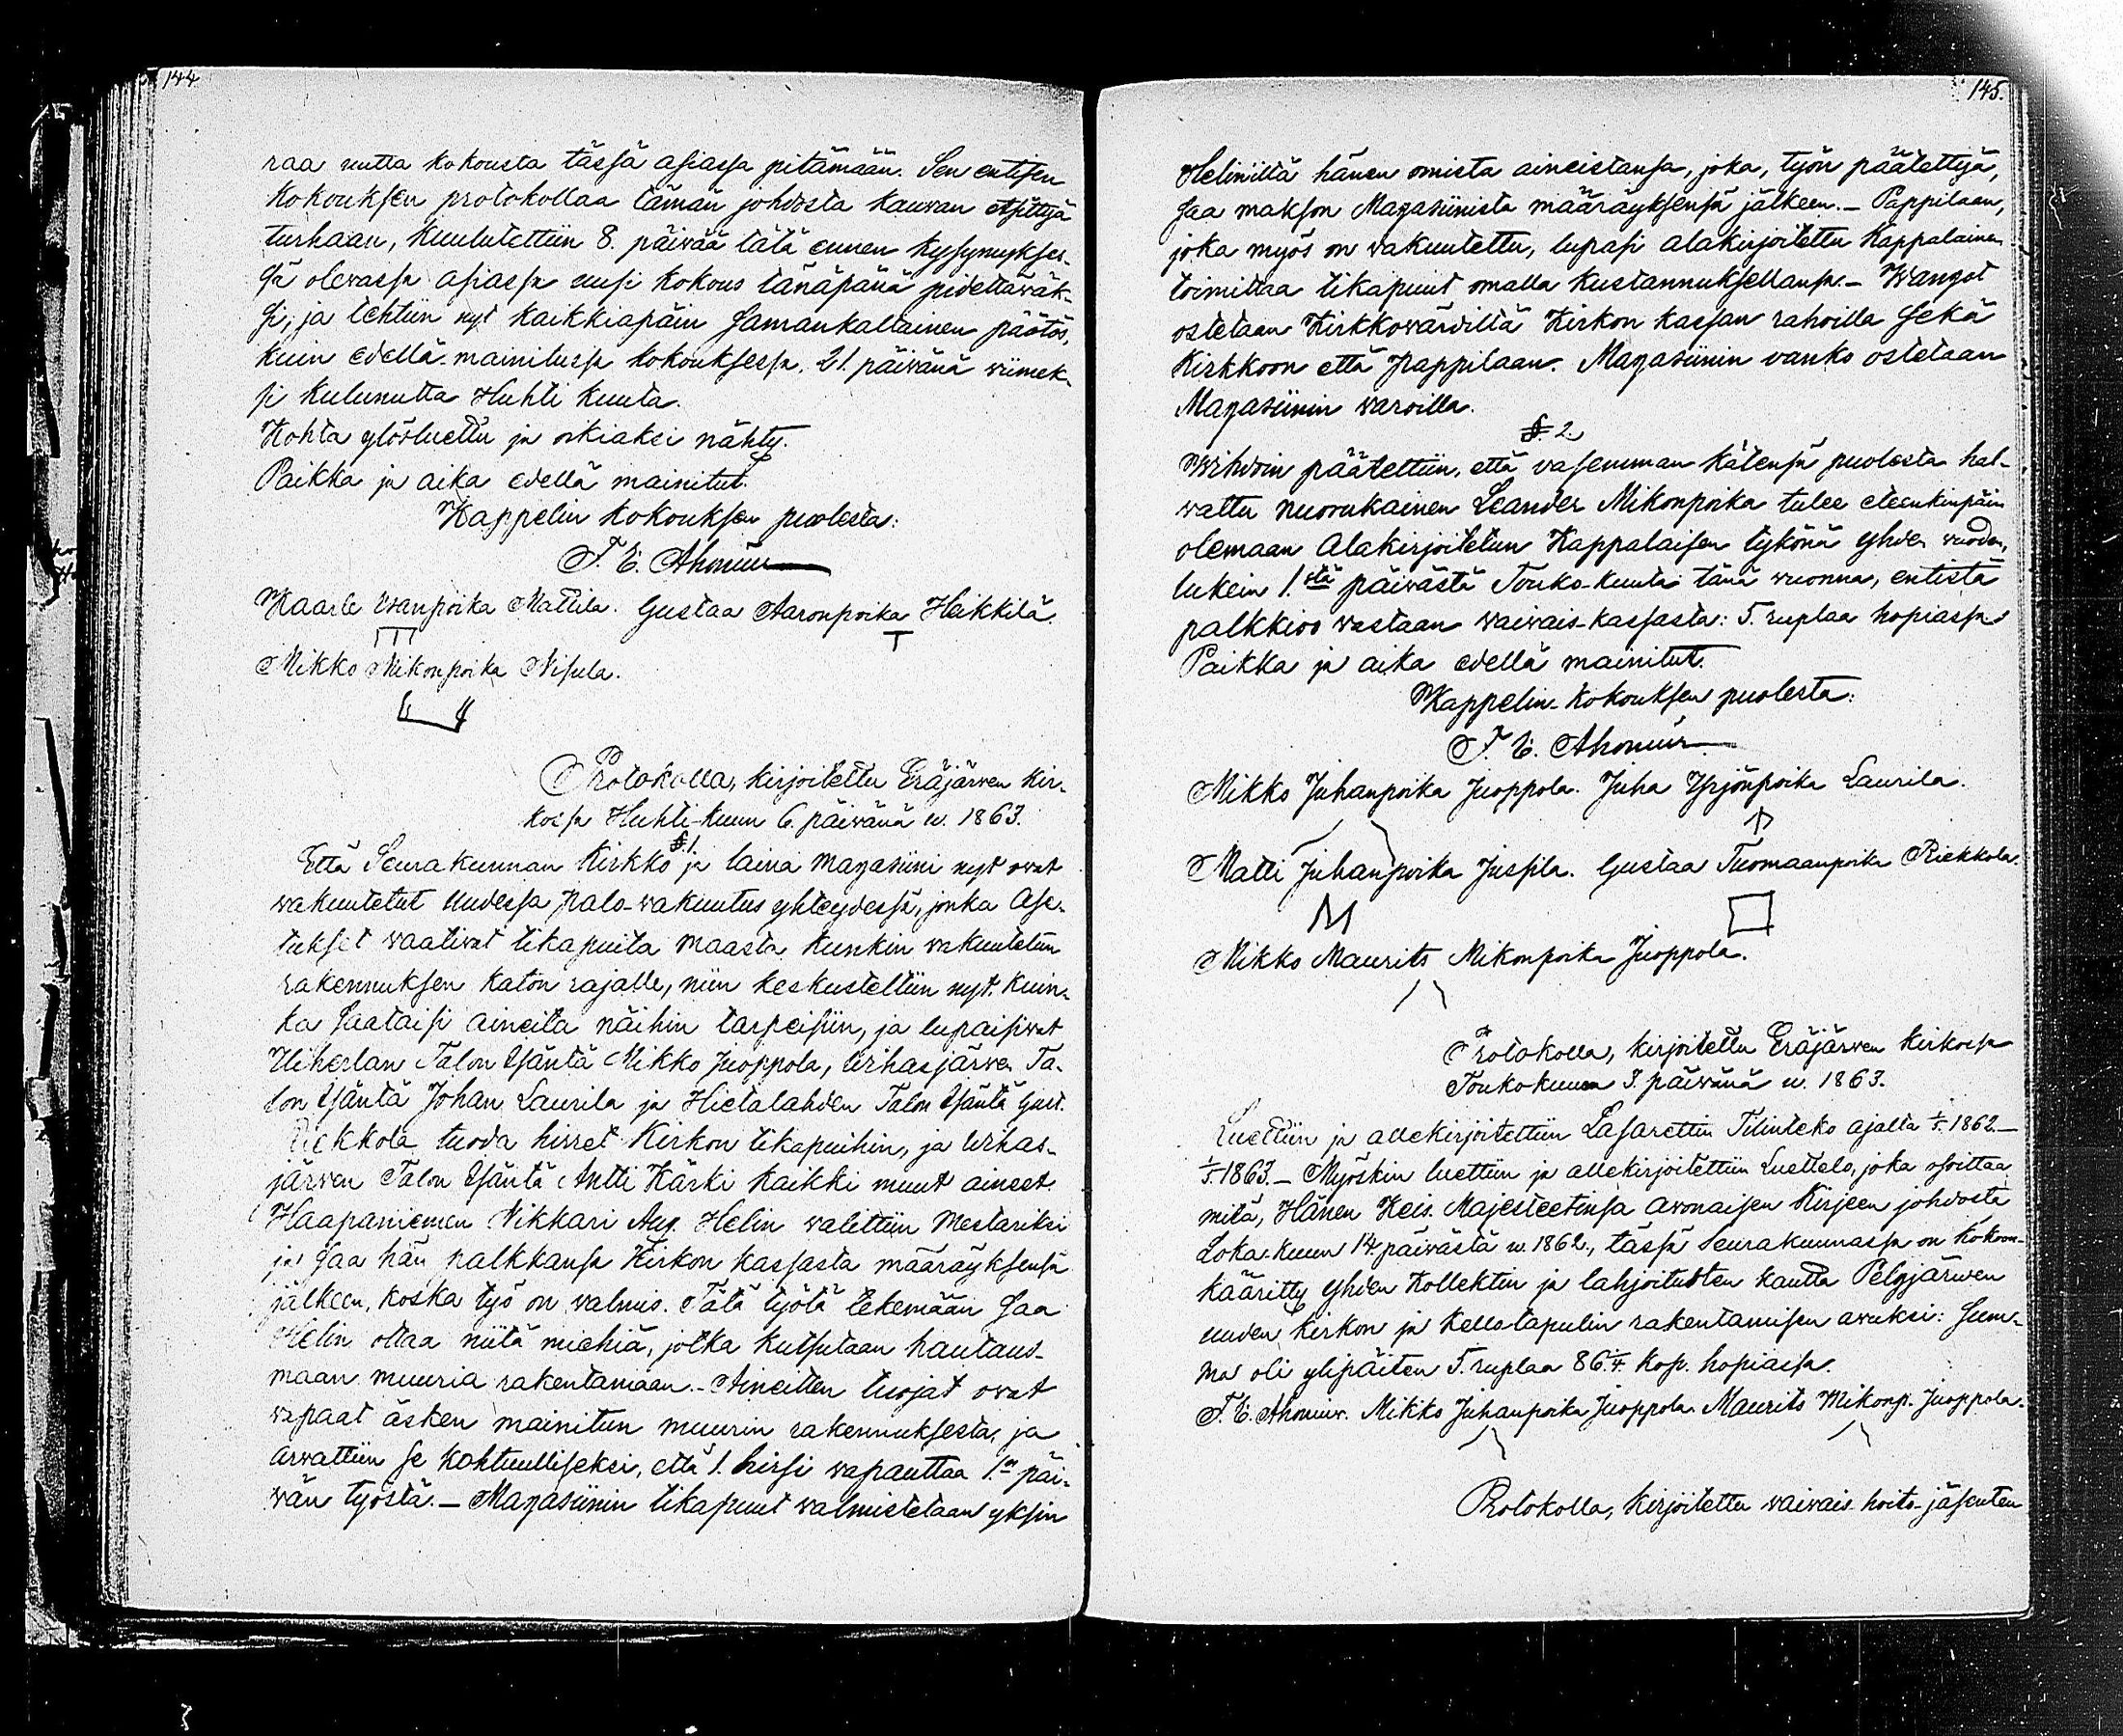 144
raa uutta kokousta tässä asiassa pitämään. Sen entisen
kokouksen protokollaa tämän johdosta kauwan etsittyä
turhaan, kuulutettiin 8. päivää tätä ennen kysymykses-
sä olevassa asiassa uusi kokous tänäpänä pidettäväk-
si; ja tehtiin nyt kaikkiapäin samankaltainen päätös,
kuin edellä-mainitussa kokouksessa, 21. päivänä wiimek-
si kulunutta Huhti kuuta.
Kohta ylösluettu ja oikiaksi nähty.
Paikka ja aika edellä mainitut.
Kappelin kokouksen puolesta:
F. E. Ahonius
Kaarle Iivanpoika Mattila. Gustaa Aaronpoika Heikkilä.
Mikko Mikonpoika Nisula.
Protokolla, kirjoitettu Eräjärwen kir-
kossa Huhti-kuun 6. päivänä w. 1863.
§. 1.
Että Seurakunnan Kirkko ja laina magasiini nyt ovat
wakuutetut Uudessa palo-wakuutus yhteydessä, jonka Ase-
tukset waativat tikapuita maasta kunkin wakuutetun
rakennuksen katon rajalle, niin keskusteltiin nyt, kuin-
ka saataisi aineita näihin tarpeisiin, ja lupaisivat
Uiherlan Talon Isäntä Mikko Juoppola, Urhasjärwen Ta-
lon Isäntä Johan Laurila ja Hietalahden Talon Isäntä Gust.
Riekkola tuoda hirret Kirkon tikapuihin, ja Urhas-
järwen Talon Isäntä Antti Kärki kaikki muut aineet.
Haapaniemen Nikkari Aug. Helin walittiin Mestariksi
ja saa hän palkkansa Kirkon kassasta määräyksensä
jälkeen, koska työ on walmis. Tätä työtä tekemään saa
Helin ottaa niitä miehiä, jotka kutsutaan hautaus-
maan muuria rakentamaan. - Aineitten tuojat ovat
wapaat äsken mainitun muurin rakennuksesta, ja
arwattiin se kohtuulliseksi, että 1. hirsi wapauttaa 1.en päi-
wän työstä. - Magasiinin tikapuut walmistetaan yksin
145.
Heliniltä hänen omista aineistansa, joka, työn päätettyä,
saa makson Magasiinista määräyksensä jälkeen. - Pappilaan,
joka myös on vakuutettu, lupasi alakirjoitettu Kappalainen
toimittaa tikapuut omalla kustannuksellansa. - Wangot
ostetaan Kirkkowärdiltä Kirkon kassan rahoilla sekä
Kirkkoon että Pappilaan. Magasiinin vanko ostetaan
Magasiinin waroilla.
§. 2.
Wihdoin päätettiin, että vasemman kätensä puolesta hal-
wattu nuorukainen Leander Mikonpoika tulee eteenkinpäin
olemaan Alakirjoitetun Kappalaisen tykönä yhden vuoden,
lukein 1.stä päivästä Touko-kuuta tänä wuonna, entistä
palkkioo wastaan waivais-kassasta: 5. ruplaa hopiassa
Paikka ja aika edellä mainitut.
Kappelin-kokouksen puolesta:
F. E. Ahonius
Mikko Juhanpoika Juoppola. Juha Yrjönpoika Laurila.
Matti Juhanpoika Jussila. Gustaa Tuomaanpoika Riekkola.
Mikko Maurits Mikonpoika Juoppola.
Protokolla, kirjoitettu Eräjärwen kirkossa
Toukokuun 3. päivänä w. 1863.
Luettiin ja allekirjoitettiin Lasarettin Tilinteko ajalta 1/5. 1862. -
1/5. 1863. - Myöskin luettiin ja allekirjoitettiin Luettelo, joka osoittaa
mitä, Hänen Keis. Majesteetinsa avonaisen Kirjeen johdosta
Loka-kuun 14. päivästä w. 1862., tässä Seurakunnassa on kokoon-
kääritty yhden Kollektin ja lahjoitusten kautta Pelgjärwen
uuden kirkon ja kellotapulin rakentamisen avuksi: Sum-
ma oli ylipäiten 5. ruplaa 86. kop. hopiassa.
F. E. Ahonius. Mikko Juhanpoika Juoppola. Maurits Mikonp. Juoppola.
Protokolla, kirjoitettu waivais-hoito-jäsenten